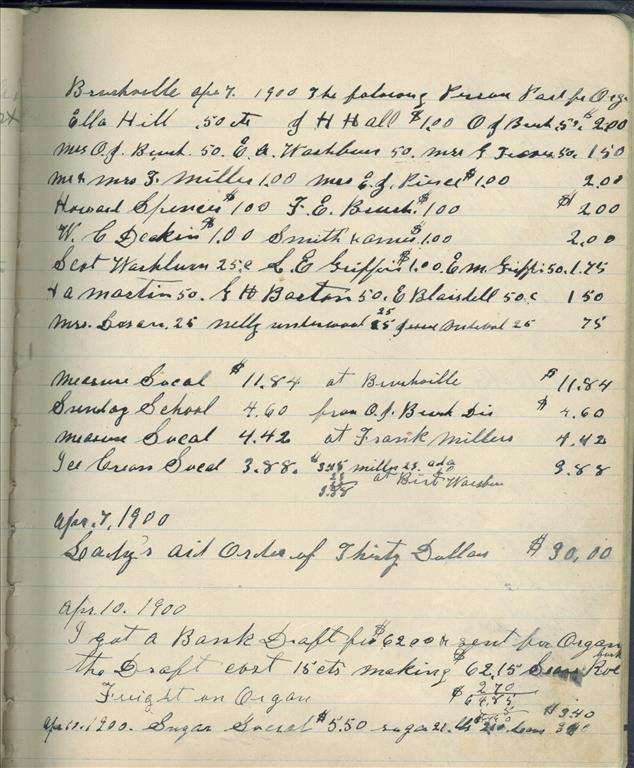 Brushville Apr 7. 1900 The folowing Person Paid for Org.
Ella Hill .50 cts H Hall $1.00 O.J. Brush .50 $2.00
Mrs O.J. Brush. 50. E. A. Washburn 50. Mrs G 50c 1 50
Mr & Mrs F. Miller 1.00 Mrs E.J. Pierce $1.00 2.00
Howard Spencer $1 00 F. E. Brush. $1 00 $2 00
W. C Deakin $1.00 Smith $1.00 2.00
Scot Washburn 25.c L. E Griffin $1.00. E. M. Griffi 50. 1.75
Martin 50. G H Barton 50. E Blaisdell 50.c 1 50
Mrs. 25 Nelly Underwood 25 25 75
Measure Socal $11.84 at Brushville $11.84
Sunday School 4.60 from O.J. Brush Dis $4.60
Measure Socal 4.42 at Frank Millers 4.42
Ice Cream Socal 3.88. $3.45 Miller 23. 3.88
at Birt Washburn
3.88
Apr. 7, 1900
Lady's Aid Order of Thirty Dollars $30.00
Apr. 10. 1900
I got a Bank Draft for $62.00 & sent for Organ
the Draft cost 15 cts making $62.15 Sears Roe
buck
Freight on Organ $2 70
64.85
$3.40
Apr. 10. 1900. Sugar Socal $5.50 sugar 21. lbs 2.10.